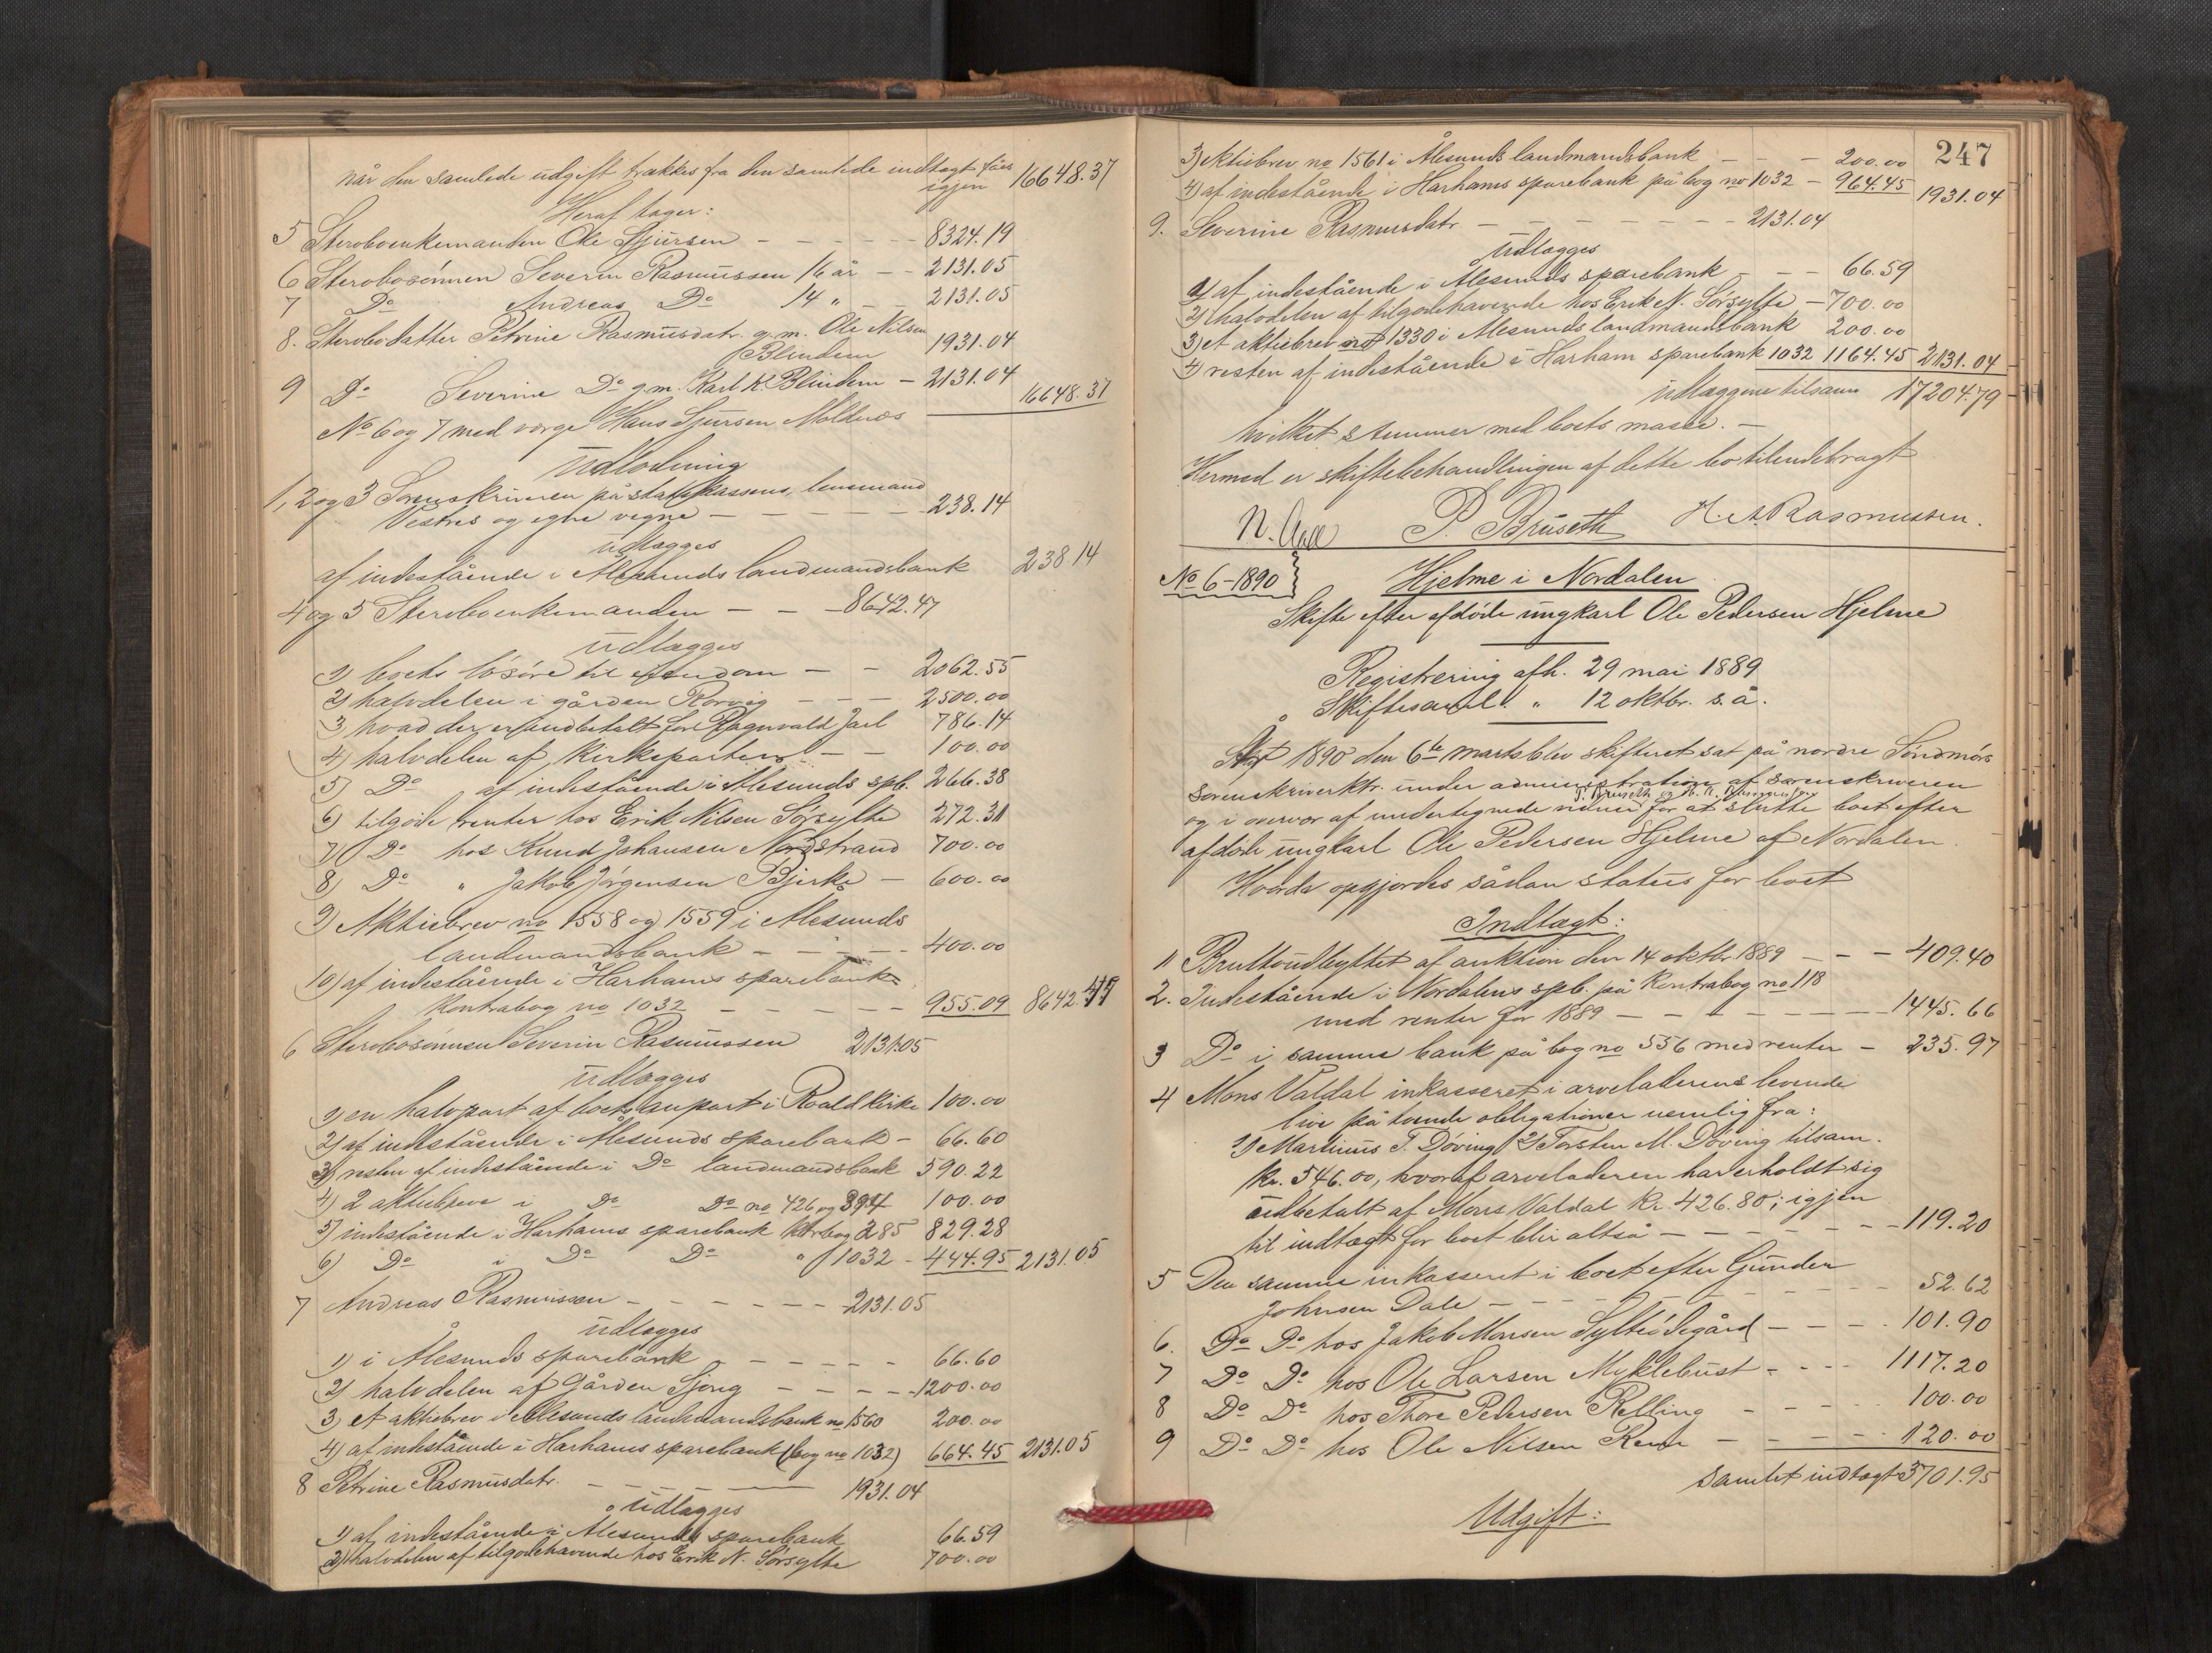 når den samlede udgift trækkes fra den samlede indtægt fåes
igjen 16648.37
Heraf tager:
5 Sterboenkemanden Ole Sjursen - - - - - 8324.19
6 Sterbosønnen Severin Rasmussen 16 år - - 2131.05
7 Do Andreas Do 14 " - - 2131.05
8. Sterbodatter Petrine Rasmusdatr. g.m. Ole Nilsen
Blindem 1931.04
9 Do Severine Do g.m. Karl K. Blindem - 2131.04 16648.37
No 6 og 7 med værge Hans Sjursen Molnes
Udlodning
1, 2 og 3 Sorenskriveren på statskassens, lensmand
Vestres og egne vegne - - - - - 238.14
udlægges
af indestående i Ålesunds landmandsbank 238.14
4 og 5 Sterboenkemanden - - - 8642.47
udlægges
1) boets løsøre til eiendom - - 2062.55
2) halvdelen i gården Rørvig - - - 2500.00
3) hvad der er indbetalt for Ragnvald Jarl 786.14
4) halvdelen af kirkeparten - - 100.00
5) Do af indestående i Ålesunds spb. 266.38
6) tilgode renter hos Erik Nilsen Sørsylte 272.31
7) Do hos Knud Johansen Nordstrand 700.00
8) Do " Jakob Jørgensen Bjerke - 600.00
9) Aktiebrev no 1558 og 1559 i Ålesunds
landmandsbank - - - - 400.00
10) af indestående i Harhams sparebank
Kontrabog no 1032 - - - - - 955.09 8642.47
6 Sterbosønnen Severin Rasmussen 2131.05
udlægges
1) en halvpart af boets anpart i Roaldkirke 100.00
2) af indestående i Ålesunds sparebank - 66.60
3) resten af indestående i Do landmandsbank 590.22
4) 2 aktiebreve i Do Do no 426 og 394 100.00
5) indestående i Harhams sparebank ktrbog 285 829.28
6) Do i Do Do " 1032 - 444.95 2131.05
7 Andreas Rasmussen - - - - - - 2131.05
udlægges
1) i Ålesunds sparebank - - - - - 66.60
2) halvdelen af gården Gjøsvig - - - - 1200.00
3) et aktiebrev i Ålesunds landmandsbank no 1560 200.00
4) af indestående i Harhams sparebank (bog no 1032) 664.45 2131.05
8 Petrine Rasmusdatr. - - - - 1931.04
udlægges
1) af indestående i Ålesunds sparebank 66.59
2) halvdelen af tilgodehavende hos Erik N. Sørsylte 700.00
247
3) Aktiebrev no 1561 i Ålesunds landmandsbank - - - 200.00
4) af indestående i Harhams sparebank på bog no 1032 - 964.45 1931.04
9. Severine Rasmusdatr. - - - - - - - 2131.04
Udlægges
1) af indestående i Ålesunds sparebank - - - 66.59
2) halvdelen af tilgodehavende hos Erik N. Sørsylte - 700.00
3) et aktiebrev no 1330 i Ålesunds landmandsbank 200.00
4) resten af indestående i Harham sparebank 1032 1164.45 2131.04
udlæggene tilsam 17204.79
hvilket stemmer med boets masse. -
Hermed er skiftebehandlingen af dette bo tilendebragt
N. Aall P. Bruseth H. A. Rasmussen.
No 6-1890 Hjelme i Nordalen
Skifte efter afdøde ungkarl Ole Pedersen Hjelme
Registrering afh. 29 mai 1889
Skiftesaml. " 12 oktbr. s.å.
År 1890 den 6te marts blev skifteret sat på nordre Søndmørs
sorenskriverktr. under administration af sorenskriveren
P. Bruseth og H. A. Rasmussen
og i overvær af undertegnede vidner for at slutte boet efter
afdøde ungkarl Ole Pedersen Hjelme af Nordalen.
Hvorda opgjordes sådan status for boet
Indtægt:
1 Bruttoudbyttet af auktion den 14 oktbr. 1889 - - - 409.40
2. Indestående i Nordalens spb. på Kontrabog no 118
med renter for 1889 - - - - - - - 1445.66
3 Do i samme bank på bog no 556 med renter - 235.97
4 Mons Valdal inkasseret i arveladerens levende
live på tvende obligationer nemlig fra:
1) Martinus T. Døving 2) Torsten M. Døving tilsam.
kr. 546.00, hvoraf arveladeren har erholdt sig
udbetalt af Mons Valdal kr. 426.80; igjen
til indtægt for boet blir altså - - - - - - 119.20
5 Den samme inkasseret i boet efter Gunder
Johnsen Dale - - - - - - - - 52.62
6. Do Do hos Jakob Monsen Sylteødegård - - - - 101.90
7 Do Do hos Ole Larsen Myklebust - - - - 1117.20
8 Do Do hos Thore Pedersen Relling - - - - 100.00
9 Do Do hos Ole Nilsen Rem - - - - - 120.00
samlet indtægt 3701.95
Udgift: